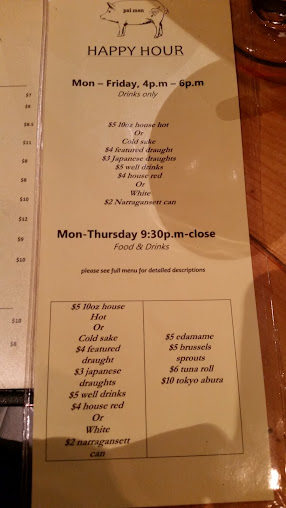 psl men
HAPPY HOUR
Mon – Friday, 4p.m – 6p.m
Drinks only
$5 10oz house hot
Or
Cold sake
$4 featured draught
$3 Japanese draughts
$5 well drinks
$4 house red
Or
White
$2 Narragansett can
Mon-Thursday 9:30p.m-close
Food & Drinks
please see full menu for detailed descriptions
$5 10oz house
Hot
Or
Cold sake
$4 featured
draught
$3 japanese
draughts
$5 well drinks
$4 house red
Or
White
$2 narragansett
can
$5 edamame
$5 brussels
sprouts
$6 tuna roll
$10 tokyo abura
$7
$9
$10
$12
$9
$10